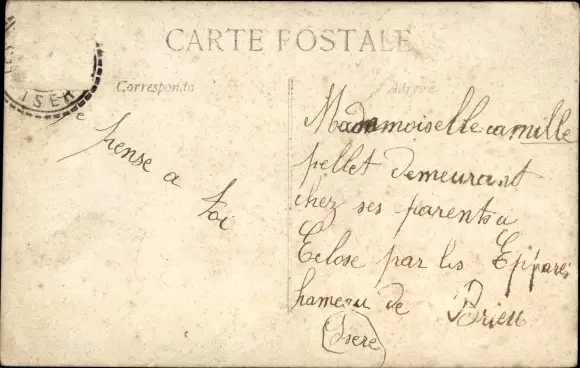 CARTE POSTALE
ISER
Corresponda
Adresse
pense a
toi
Mademoiselle camille
pellet demeurant
chez ses parents a
Eclose par les Eppares
hameau de Brieu
(Isere)